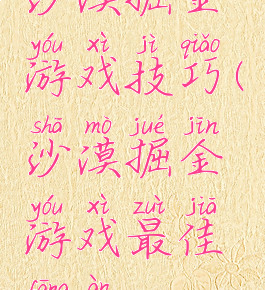 沙漠掘金
yóu xì jì qiǎo
游戏技巧(
shā mò jué jīn
沙漠掘金
yóu xì zuì jiā
游戏最佳
fāng àn